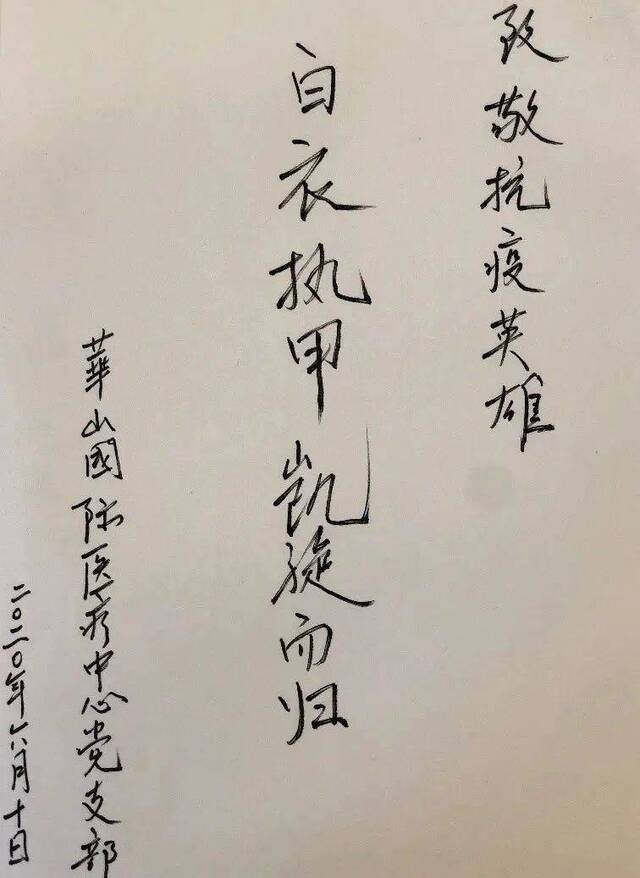 致敬抗疫英雄
白衣执甲凯旋而归
華山國际医疗中心党支部
二〇二〇年六月十日